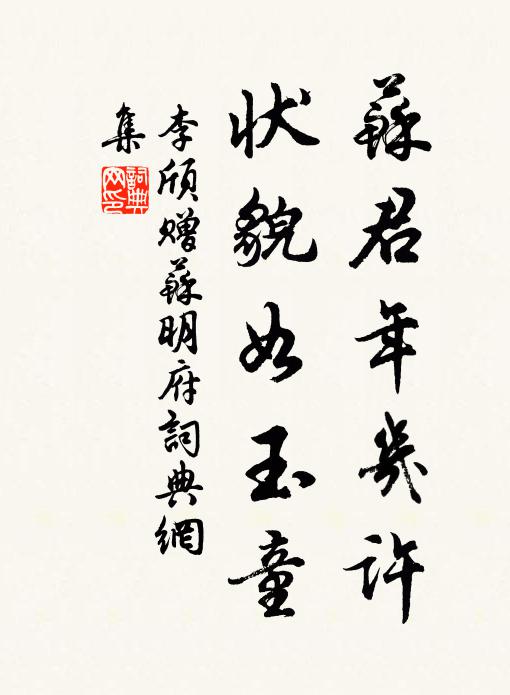 蘇君年幾許
狀貌如玉童
李頎贈蘇明府詞典網
集
詞典網印